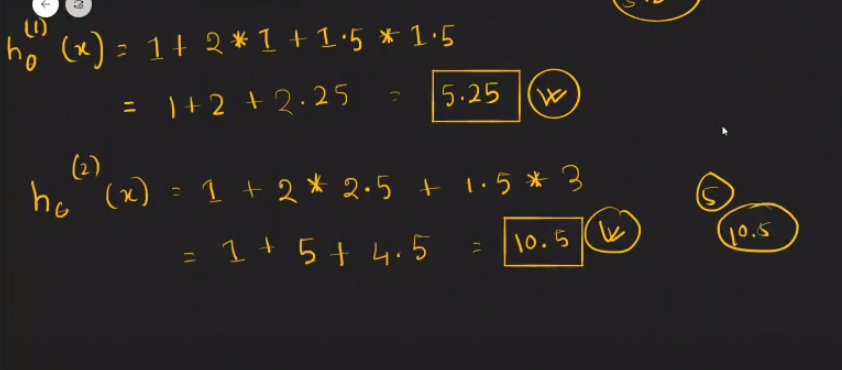 h₀⁽¹⁾(x) = 1 + 2 * 1 + 1.5 * 1.5
= 1 + 2 + 2.25 = 5.25 W
h₀⁽²⁾(x) = 1 + 2 * 2.5 + 1.5 * 3
5
= 1 + 5 + 4.5 = 10.5
10.5